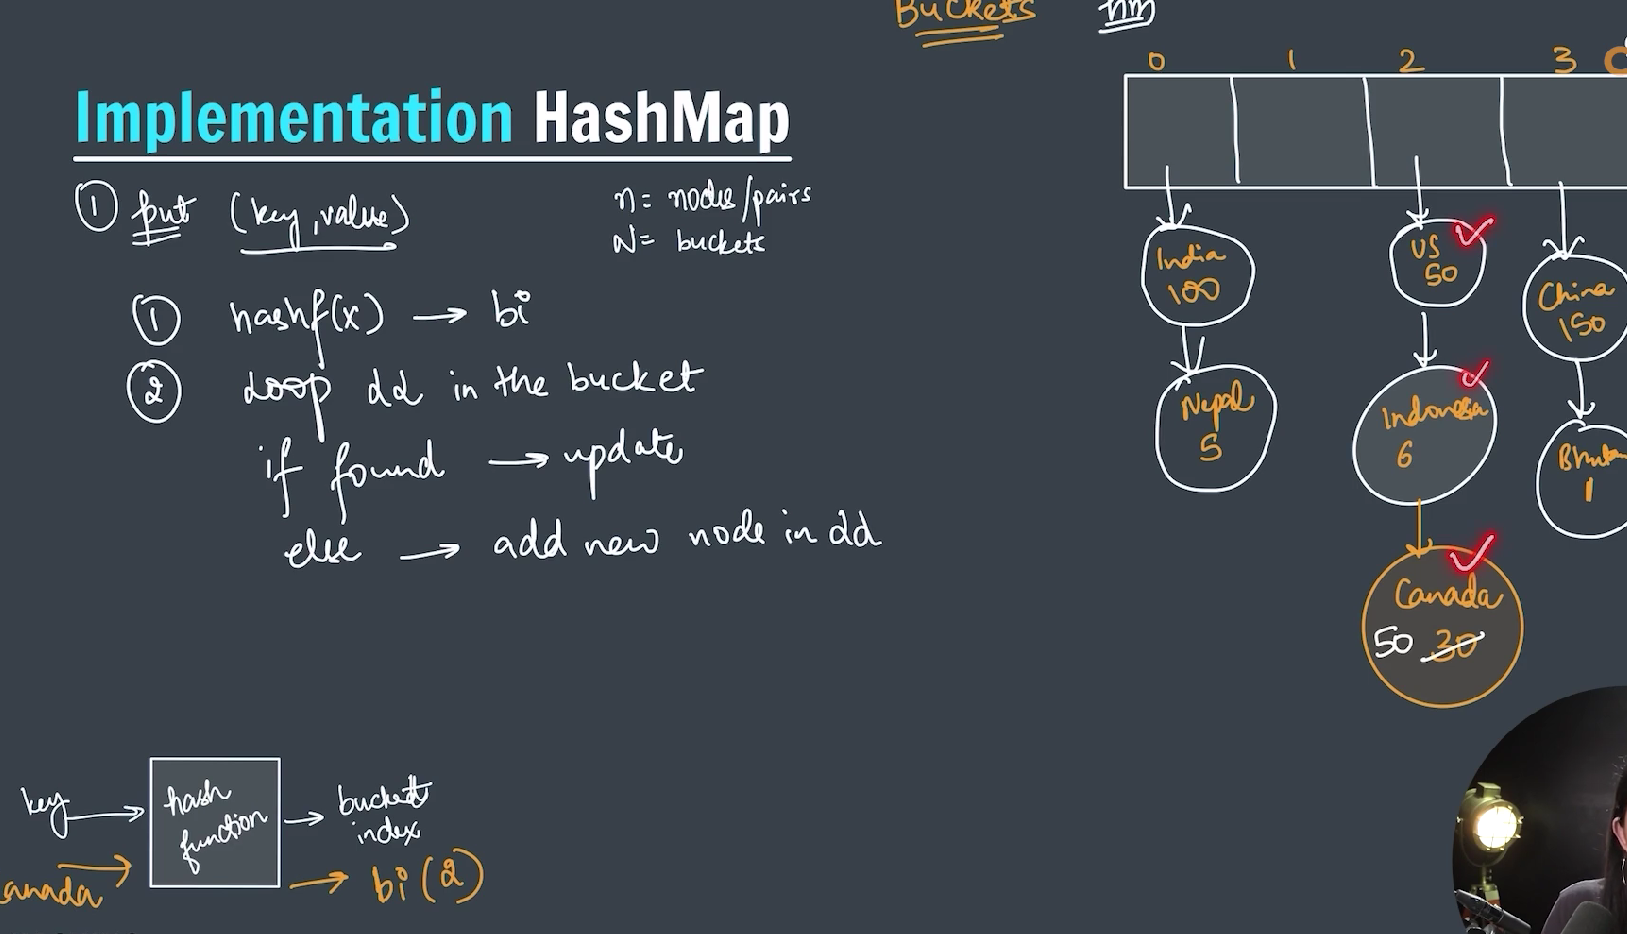 Buckets
Implementation HashMap
① put (key, value)
n = nodes/pairs
N = buckets
① hashf(x) → bi
② loop dd in the bucket
if found → update
else → add new node in dd
0 1 2 3
India
100
Nepal
5
US
50
Indonesia
6
Canada
50 30
China
150
1
key → hash function → buckets index
anada → bi (2)